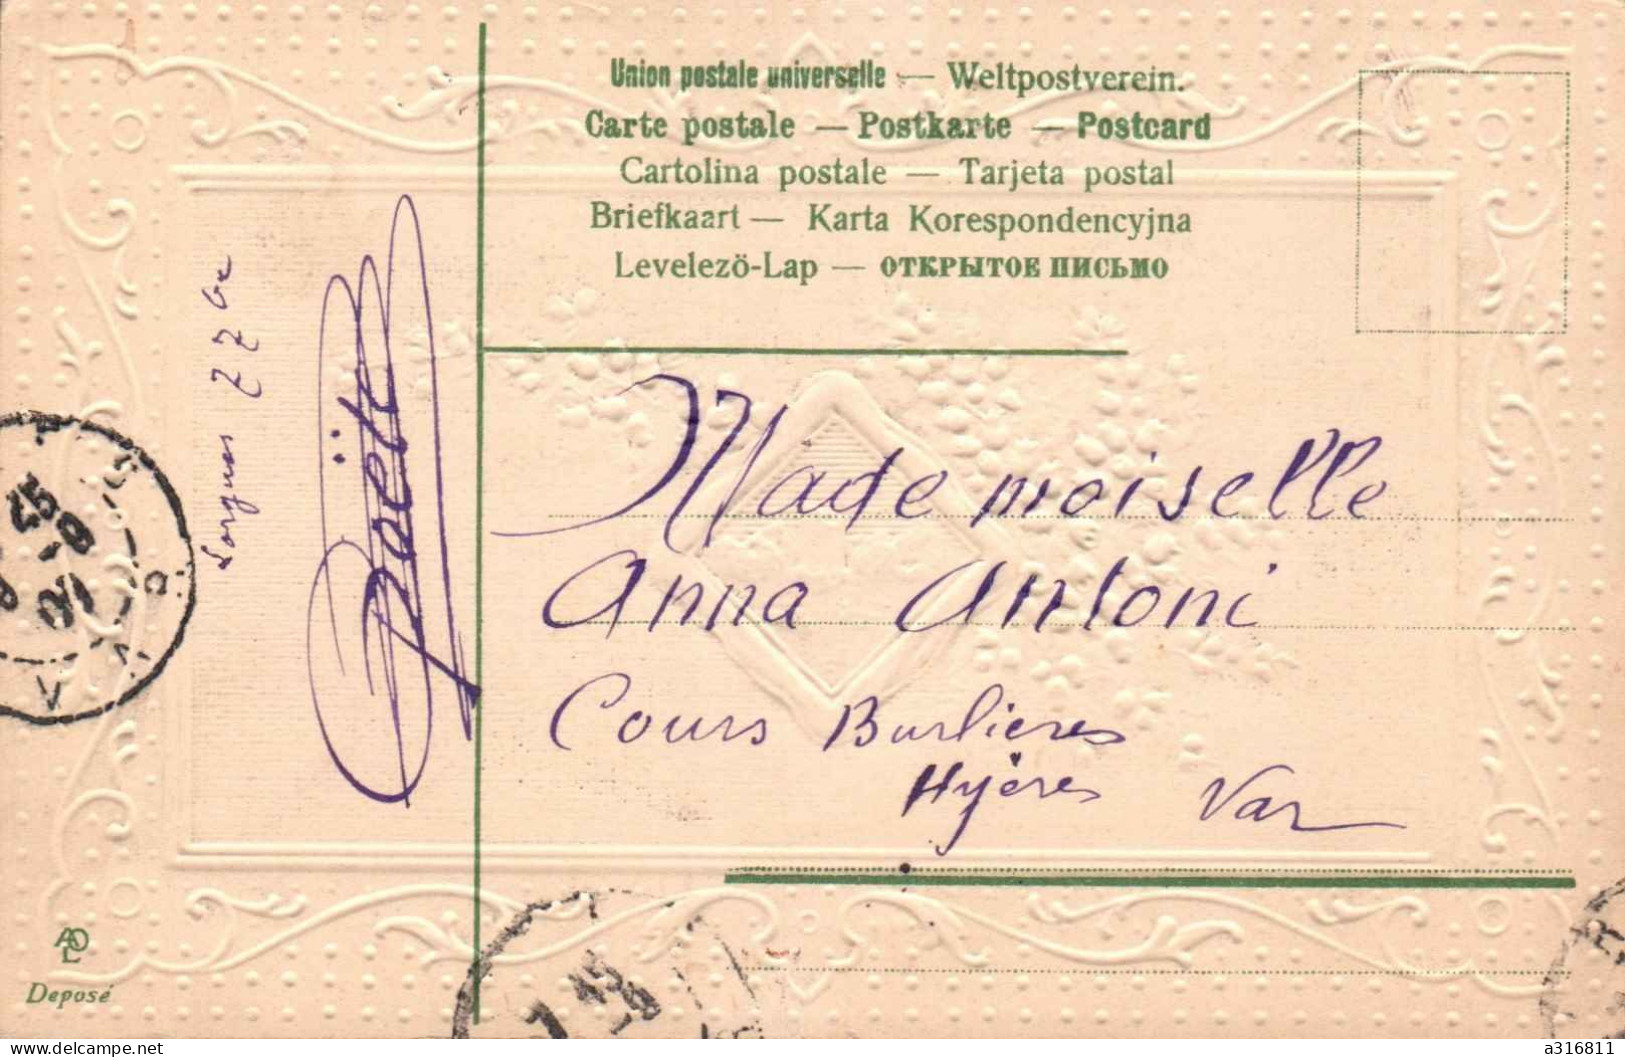 Union postale universelle — Weltpostverein.
Carte postale — Postkarte — Postcard
Cartolina postale — Tarjeta postal
Briefkaart — Karta Korespondencyjna
Levelezö-Lap — ОТКРЫТОЕ ПИСЬМО
Mademoiselle
Anna Antoni
Cours Burlieres
Hyères Var
Lorgues 7 7bre
VAR
7 45
AOL
Deposé
Delcampe.net
a316811